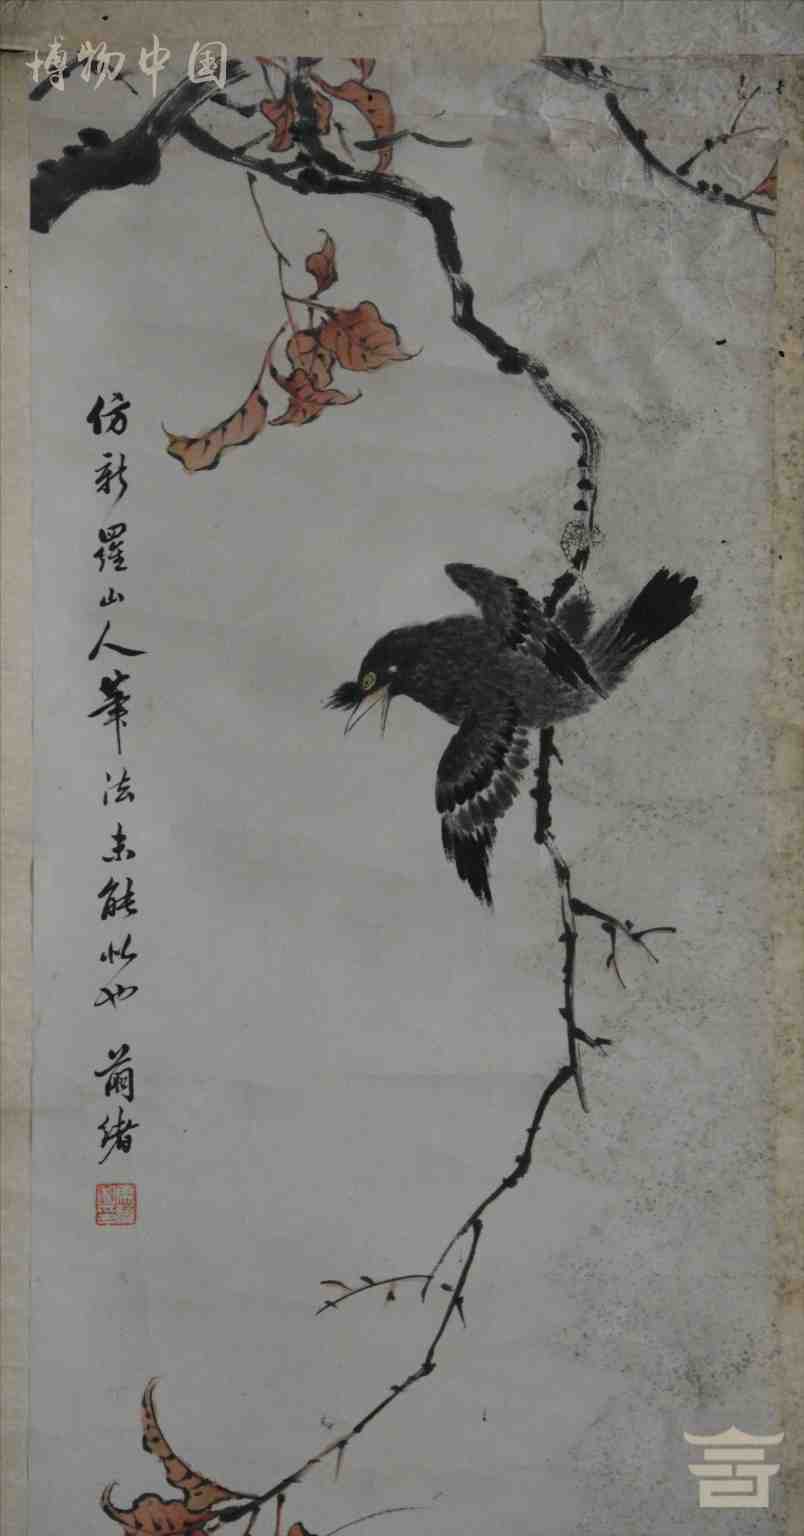 博物中国
仿新羅山人筆法未能似也